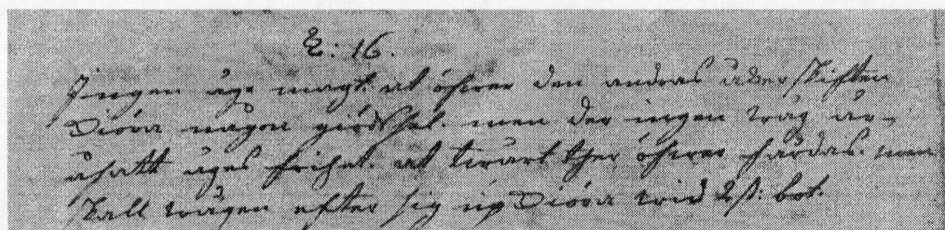 §: 16.
Ingen äge magt at öfwer den andras åkerskiften
Diöra någon giärdssel. men der ingen wäg är
åhatt äges frihet. att twärt ther öfwer fardas. men
skall wägen efter sig up Diöra wid 2 ß: bot.